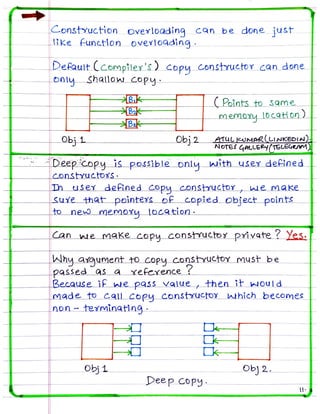 Construction overloading can be done just
like function overloading.
Default (Compiler's) copy constructor can done
only shallow copy.
B1
B2
B3
(Points to same
memory location)
Obj 1
Obj 2
ATUL KUMAR (LINKEDIN).
NOTES GALLERY (TELEGRAM)
Deep copy is possible only with user defined
constructors.
In user defined copy constructor, we make
sure that pointers of copied object points
to new memory location.
Can we make copy constructor private? Yes.
Why argument to copy constructor must be
passed as a reference?
Because if we pass value, then it would
made to call copy constructor which becomes
non-terminating.
Obj 1
Obj 2.
Deep copy.
11.